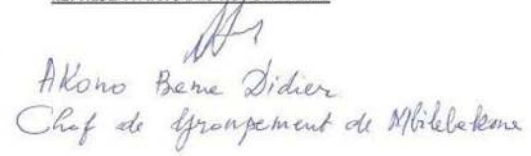 Akono Beme Didier
Chef de Groupement de Mbilebekone